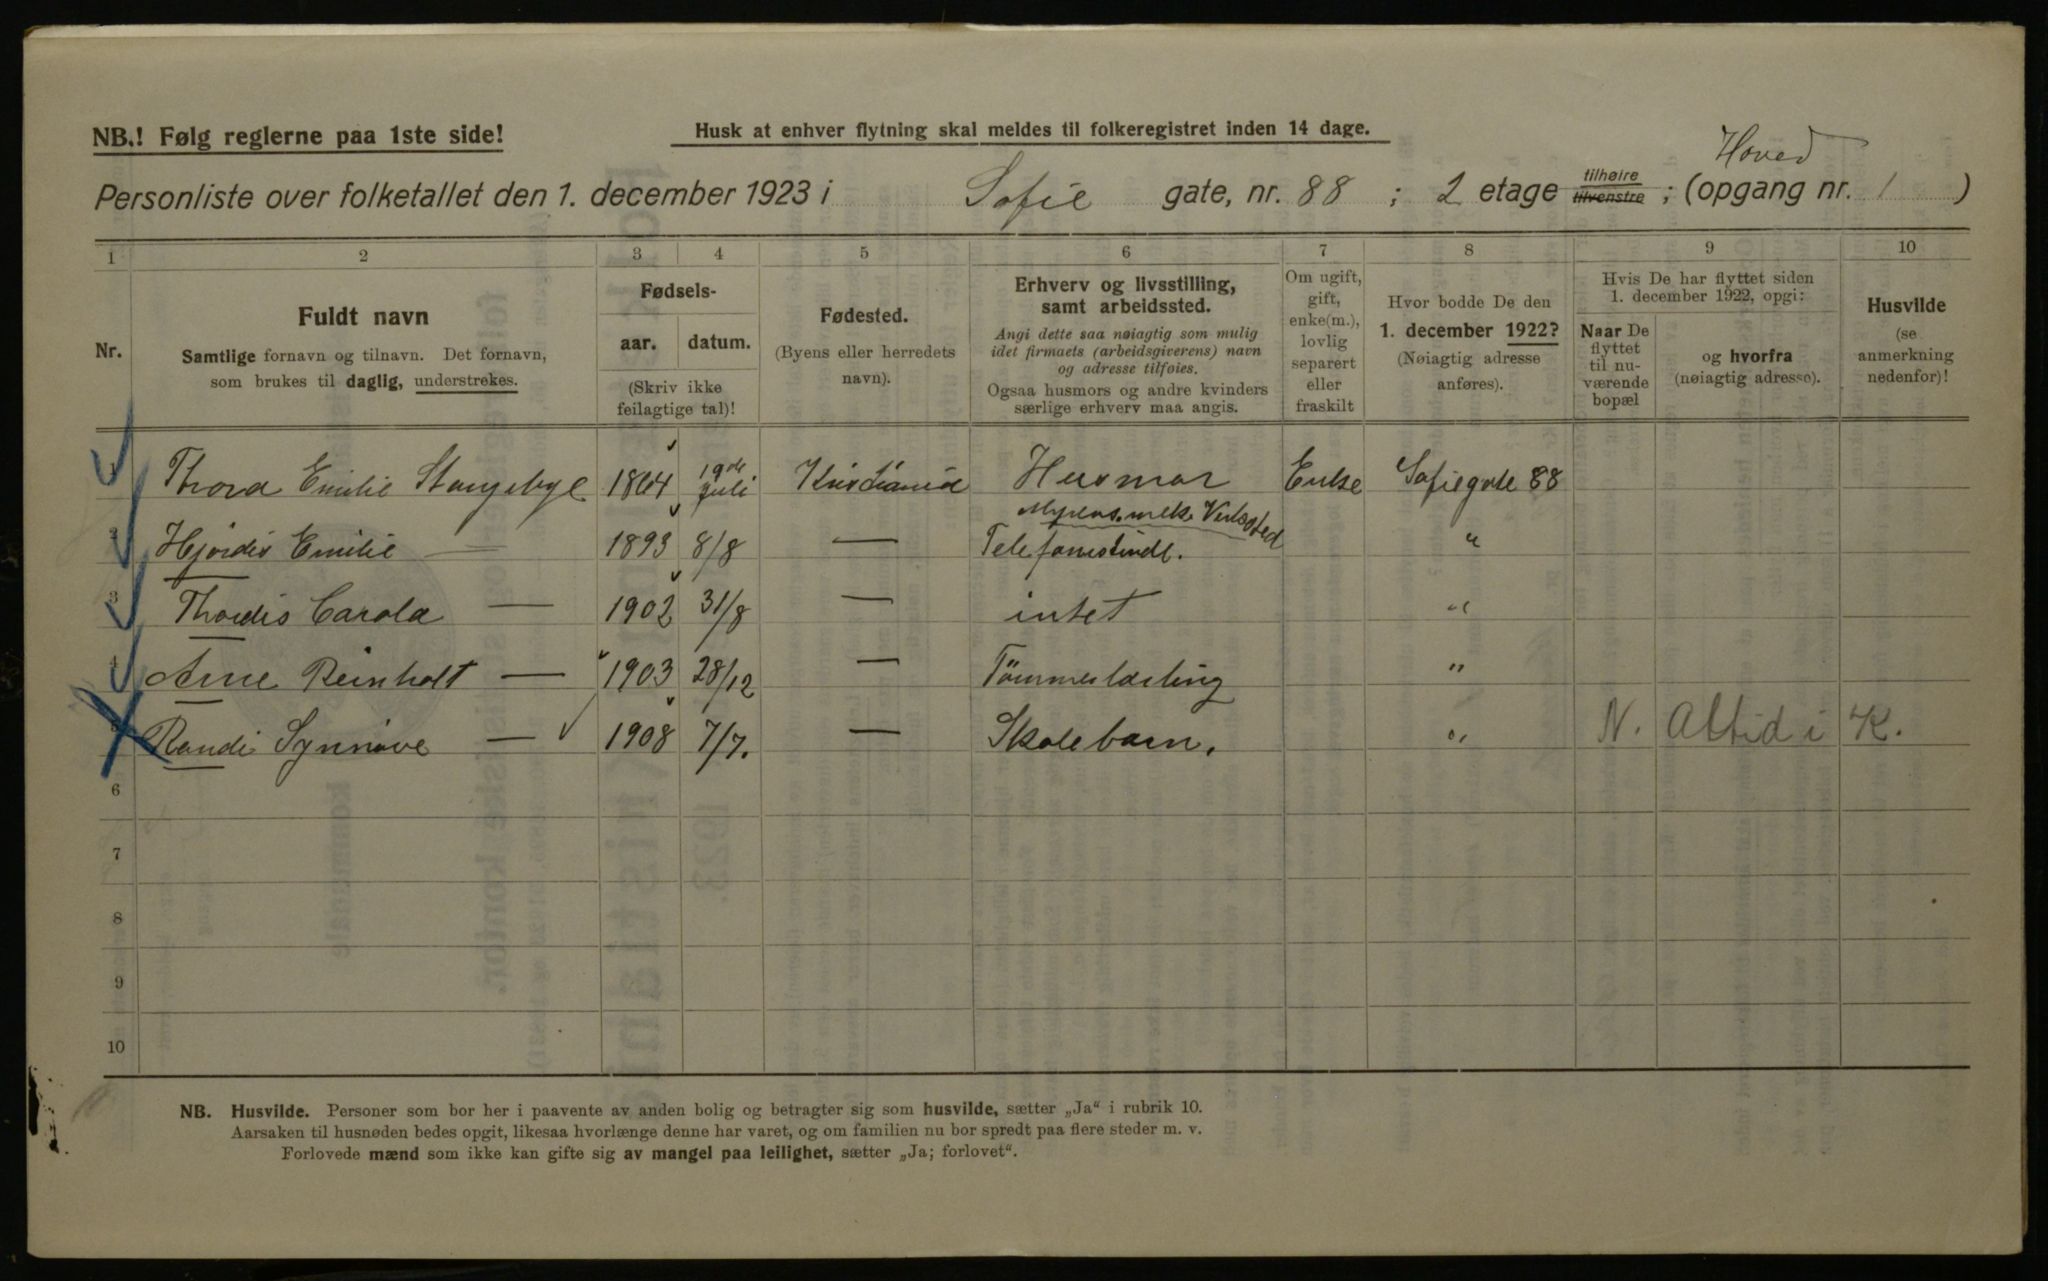 NB.! Følg reglerne paa 1ste side!
Husk at enhver flytning skal meldes til folkeregistret inden 14 dage.
Hoved
Personliste over folketallet den 1. december 1923 i Sofie gate, nr. 88 ; 2 etage tilhøire tilvenstre ; (opgang nr. 1 )
1 2 3 4 5 6 7 8 9 10
Nr.
Fuldt navn
Samtlige fornavn og tilnavn. Det fornavn,
som brukes til daglig, understrekes.
Fødsels-
aar. datum.
(Skriv ikke
feilagtige tal)!
Fødested.
(Byens eller herredets
navn).
Erhverv og livsstilling,
samt arbeidssted.
Angi dette saa nøiagtig som mulig
idet firmaets (arbeidsgiverens) navn
og adresse tilføies.
Ogsaa husmors og andre kvinders
særlige erhverv maa angis.
Om ugift,
gift,
enke(m.),
lovlig
separert
eller
fraskilt
Hvor bodde De den
1. december 1922?
(Nøiagtig adresse
anføres).
Hvis De har flyttet siden
1. december 1922, opgi:
Naar De
flyttet
til nu-
værende
bopæl
og hvorfra
(nøiagtig adresse).
Husvilde
(se
anmerkning
nedenfor)!
1 Thora Emilie Stangebye 1864 19de juli Kristiania Husmor Enke Sofiegate 88
Myrens mek. Verksted
2 Hjørdis Emilie — 1893 8/8 — Telefonistinde. "
3 Thordis Carola — 1902 31/8 — intet "
4 Arne Reinholt — 1903 28/12 — Tömmerlærling "
5 Randi Synnøve — 1908 7/7. — Skolebarn. " N. Altid i K.
6
7
8
9
10
NB. Husvilde. Personer som bor her i paavente av anden bolig og betragter sig som husvilde, sætter „Ja" i rubrik 10.
Aarsaken til husnøden bedes opgit, likesaa hvorlænge denne har varet, og om familien nu bor spredt paa flere steder m. v.
Forlovede mænd som ikke kan gifte sig av mangel paa leilighet, sætter „Ja; forlovet".